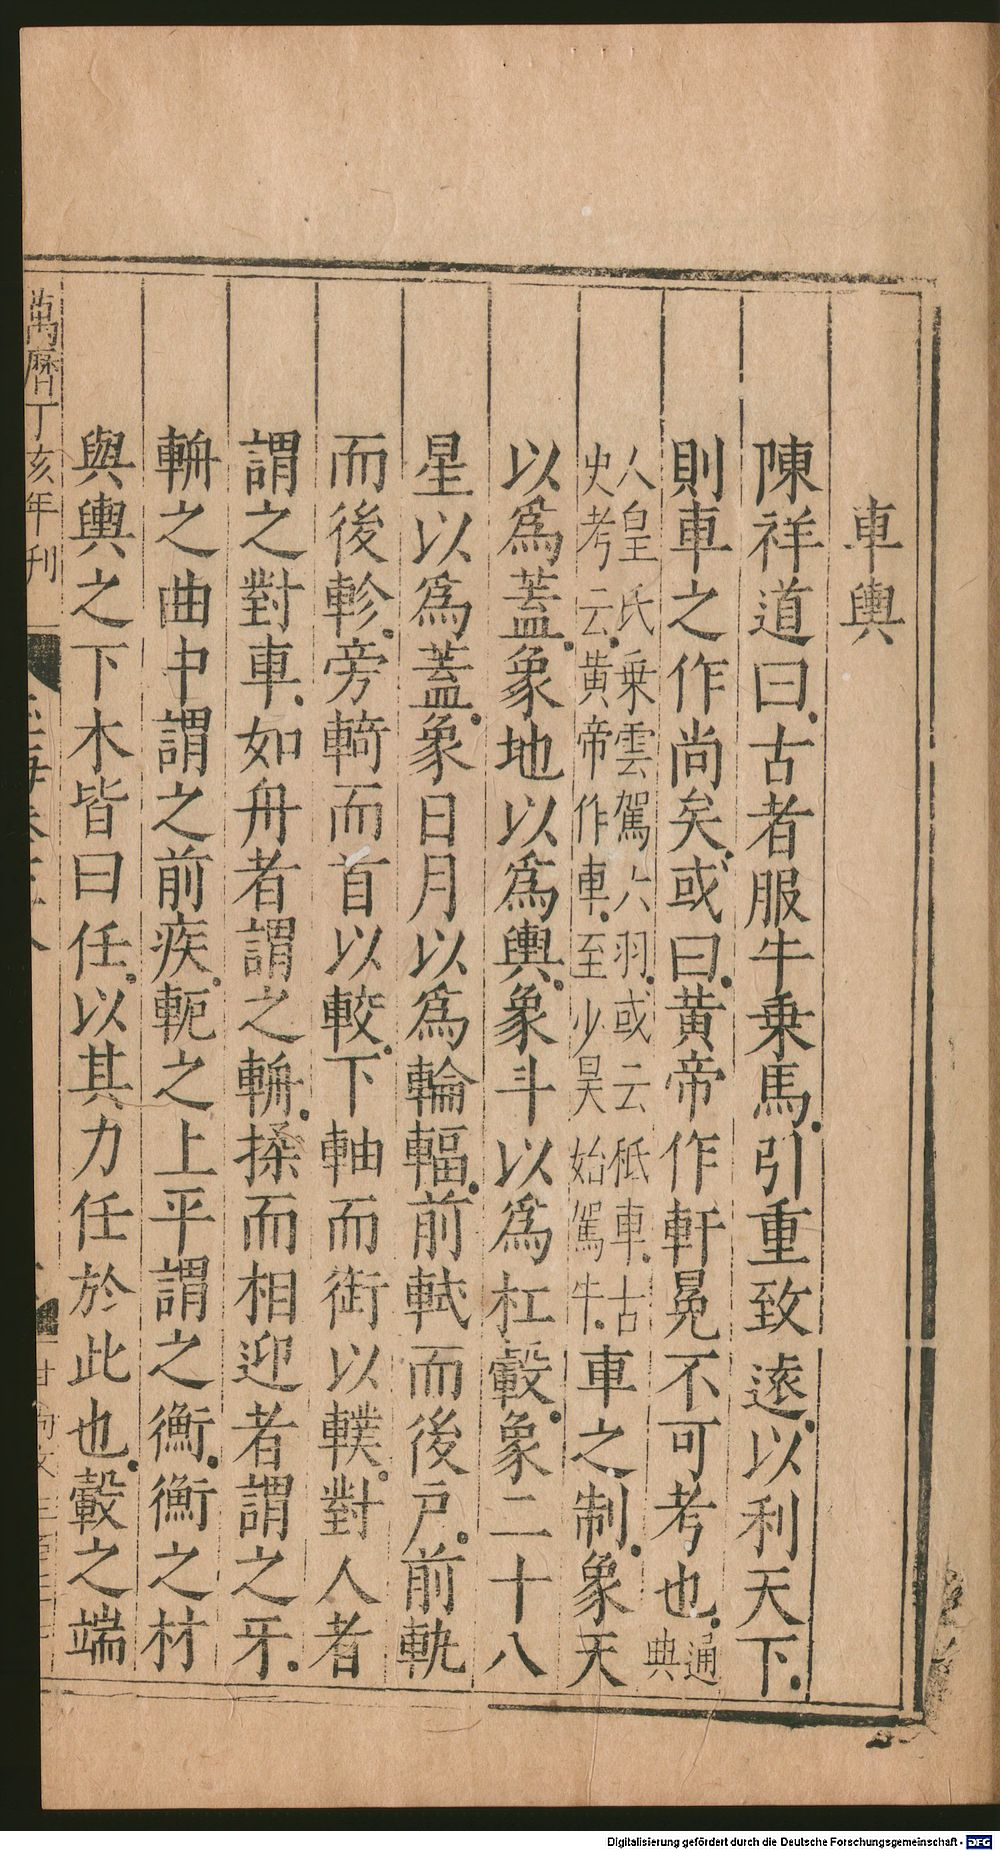 車輿
陳祥道曰古者服牛乗馬引重致逺以利天下
則車之作尚矣或曰黄帝作軒冕不可考也通典
人皇氏乗雲駕六羽或云秪車古史考云黄帝作車至少昊始駕牛車之制象天
以爲蓋象地以爲輿象斗以爲杠轂象二十八
星以爲蓋象日月以爲輪輻前軾而後戸前軌
而後軫旁輢而首以較下軸而銜以轐對人者
謂之對車如舟者謂之輈揉而相迎者謂之牙
輈之曲中謂之前疾軛之上平謂之衡衡之材
與輿之下木皆曰任以其力任於此也轂之端
萬曆丁亥年刊
Digitalisierung gefördert durch die Deutsche Forschungsgemeinschaft - DFG